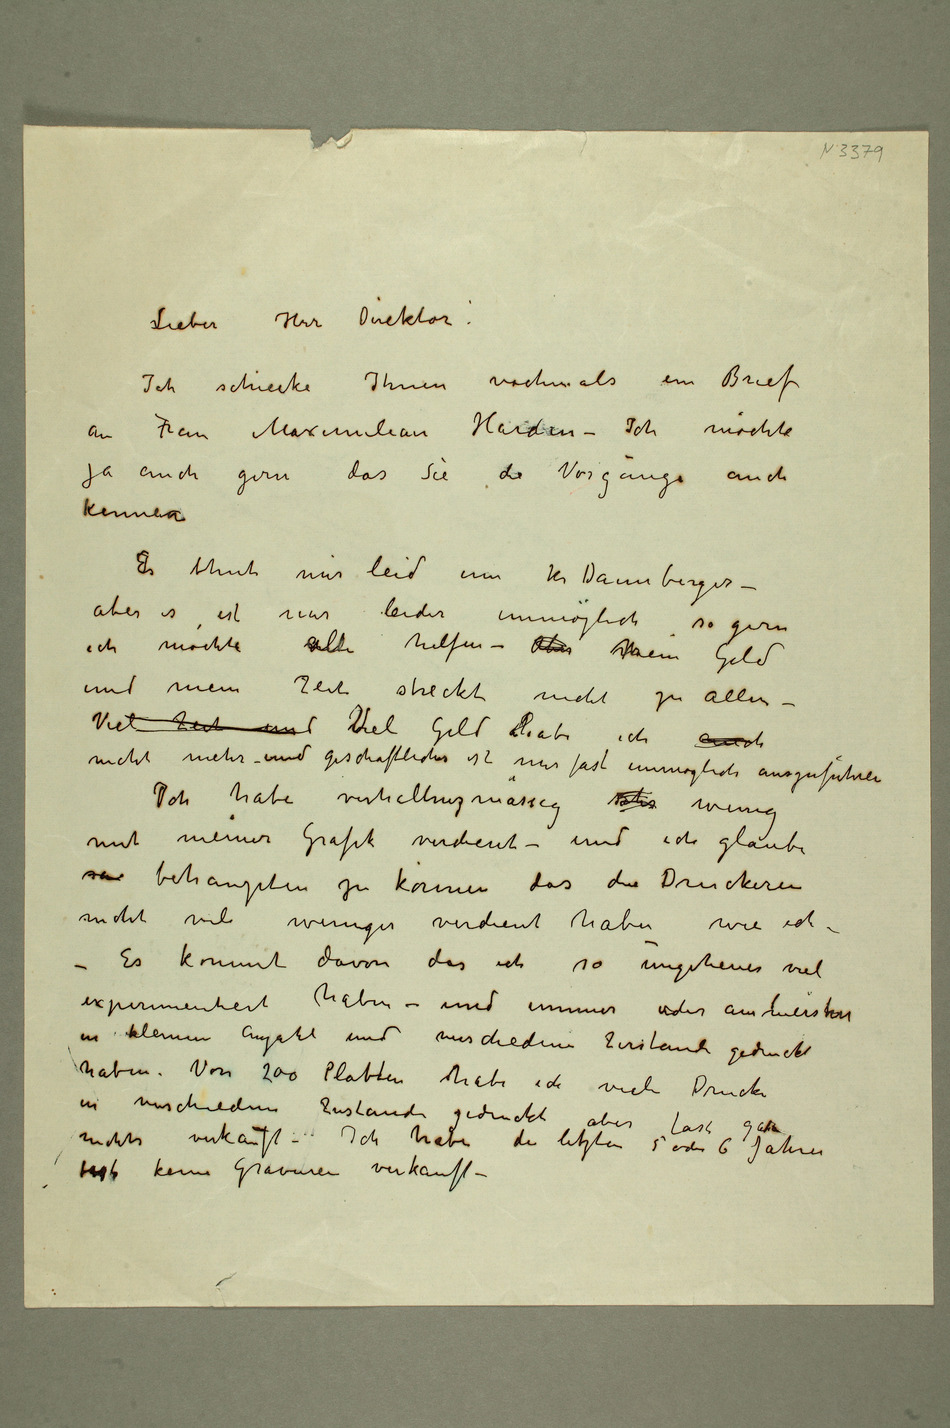 N 3379
Lieber Herr Direktor!
Ich schicke Ihnen nochmals ein Brief
an Frau Maximilian Harden – Ich möchte
ja auch gern das Sie die Vorgänge auch
kennen
Es thut mir leid um Hr Dannberger –
aber es ist mir leider unmöglich so gern
ich möchte alle helfen – aber Mein Geld
und mein Zeit streckt nicht zu allen –
Viel Zeit und Viel Geld habe ich auch
nicht mehr – und geschäftliches ist mir fast unmöglich auszuführen
Ich habe verhaltnizmässig wenig
mit meiner Grafik verdient – und ich glaube
behaupten zu können das die Druckeren
nicht viel weniger verdient haben wie ich –
– Es kommt davon das ich so ungeheuer viel
experimentiert haben – und immer oder am meisten
in kleinen Anzahl und verschiedene Zustande gedruckt
haben. Von 200 Platten habe ich viele Drucke
in verschiedene Zustande gedruckt aber fast gar
nichts verkauft – Ich habe die letzten 5 oder 6 Jahren
fast keine Gravuren verkauft –